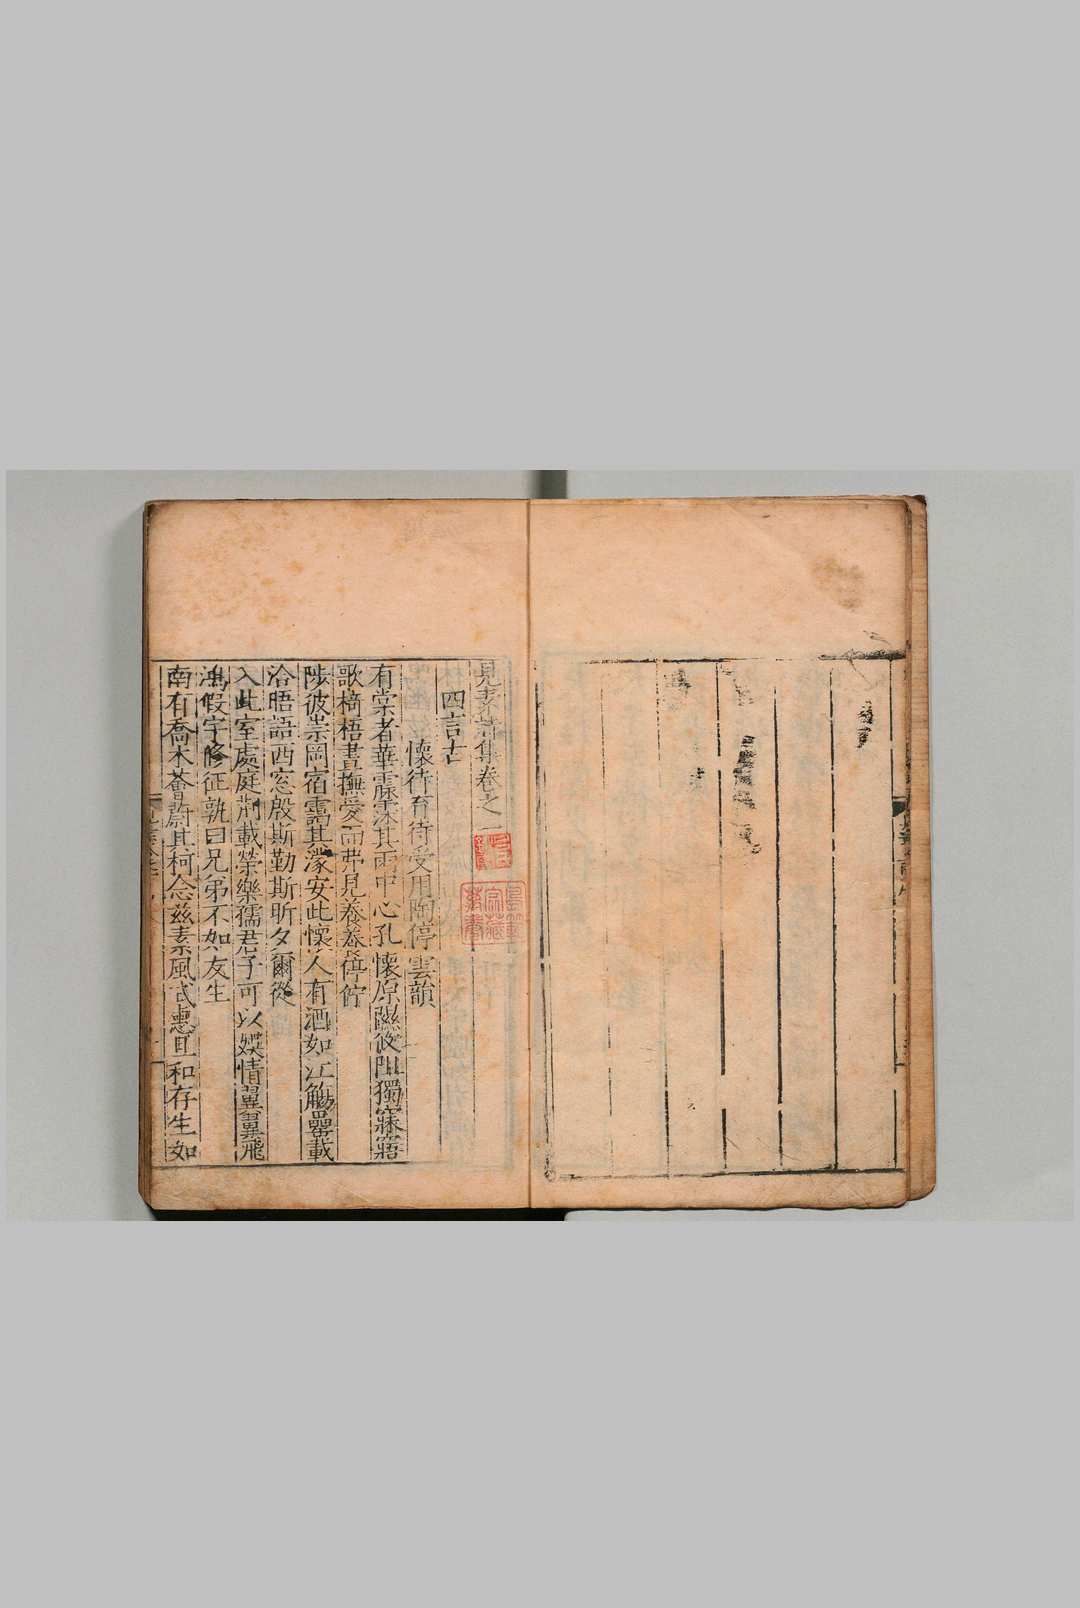 見素詩集卷之一
四言古
懷待育待受用陶停雲韻
有棠者華霡霂其雨中心孔懷原隰攸阻獨寐寤
歌槁梧晝撫愛而弗見养养停佇
陟彼崇岡宿靄其濛安此懷人有酒如江觴罍載
洽晤語西窓殷斯勤斯昕夕爾從
入此室處庭荊載榮樂孺君子可以娛情翼翼飛
鴻假宇脩征孰曰兄弟不如友生
南有喬木薈蔚其柯念茲素風式遄且和存生如